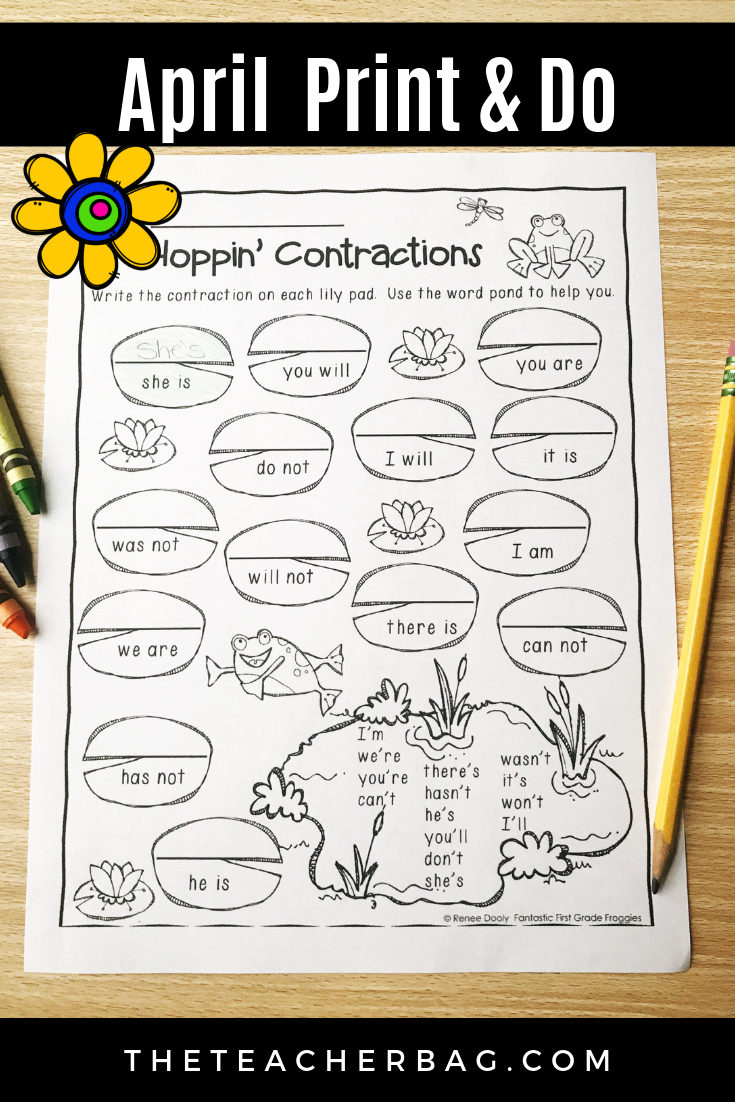 April Print & Do
Hoppin' Contractions
Write the contraction on each lily pad. Use the word pond to help you.
she's
she is
you will
you are
do not
I will
it is
was not
will not
I am
we are
there is
can not
has not
he is
I'm
we're
you're
can't
there's
hasn't
he's
you'll
don't
she's
wasn't
it's
won't
I'll
© Renee Dooly Fantastic First Grade Froggies
THETEACHERBAG.COM